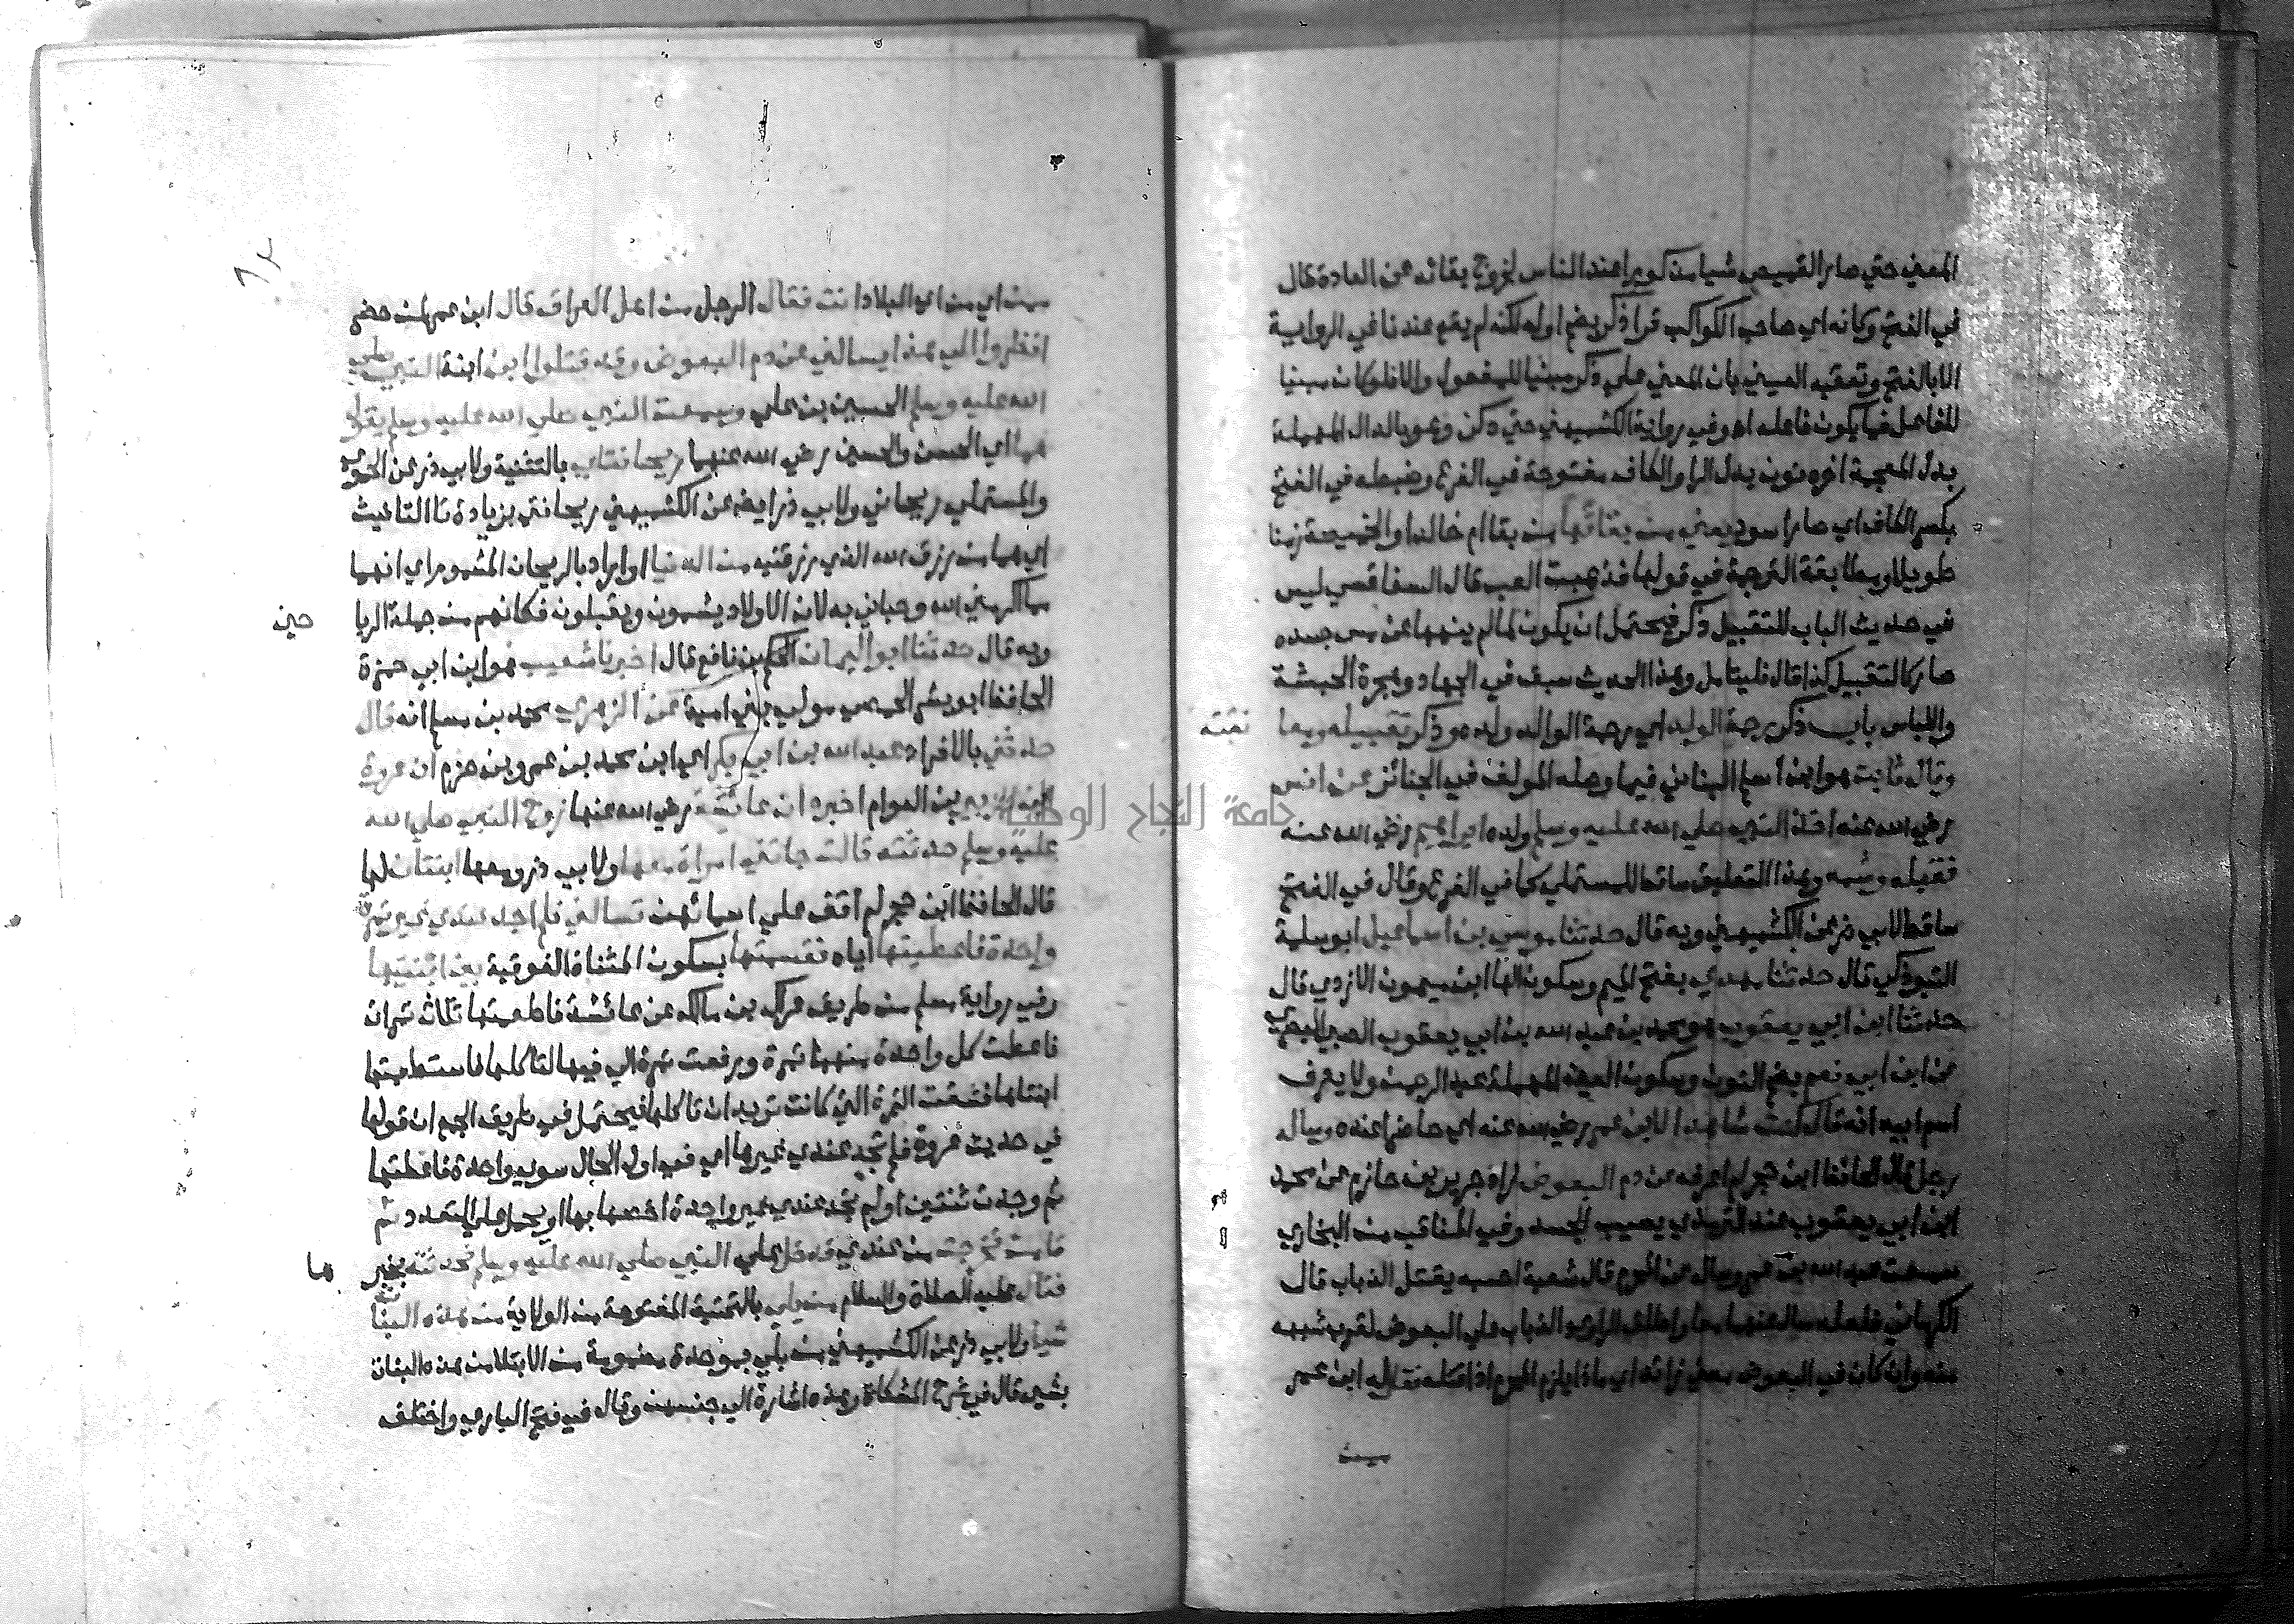 المعني حتي صار القميص شيا مذكورا عند الناس لخروج بقائه عن العادة قال
في الفتح وكانه اي صاحب الكواكب قرا ذكر بضم اوله لكنه لم يقع عندنا في الرواية
الا بالفتح وتعقبه العيني بان المعني علي ذكر مبنيا للمفعول والا فلو كان مبنيا
للفاعل فما يكون فاعله اهـ وفي رواية الكشميهني حتي دكن وهو بالدال المهملة
بدل المعجمة اخره نون بدل الرا والكاف مفتوحة في الفرع وضبطه في الفتح
بكسر الكاف اي صار اسود يعني من بقائها من بقا ام خالد او الخميصة زمنا
طويلا ومطابقة الترجمة في قولها فذهبت العب قال السفاقسي ليس
في حديث الباب للتقبيل ذكر فيحتمل ان يكون لما لم ينهها عن مس جسده
صار كالتقبيل كذا قال فليتامل وهذا الحديث سبق في الجهاد وهجرة الحبشة
واللباس باب ذكر رحمة الولد اي رحمة الوالد ولده وذكر تقبيله ومعا نقته
وقال ثابت هو ابن اسلم البناني فيما وصله المولف في الجنائز عن انس
رضي الله عنه اخذ النبي صلي الله عليه وسلم ولده ابراهيم رضي الله عنه
فقبله وشمه وهذا التعليق ساقط للمستملي كما في الفرع وقال في الفتح
ساقط لابي ذر عن الكشميهني وبه قال حدثنا موسي بن اسماعيل ابو سلمة
التبوذكي قال حدثنا مهدي بفتح الميم وسكون الها ابن ميمون الازدي قال
حدثنا ابن ابي يعقوب هو محمد بن عبد الله بن ابي يعقوب الضبي البصري
عن ابن ابي نعم بضم النون وسكون العين المهملة عبد الرحمن ولا يعرف
اسم ابيه انه قال كنت شاهدا لابن عمر رضي الله عنه اي حاضرا عنده وساله
رجل قال الحافظ ابن حجر لم اعرفه عن دم البعوض زاد جرير بن حازم عن محمد
ابن ابي يعقوب عند الترمذي يصيب الجسد وفي المناقب من البخاري
سمعت عبد الله بن عمر وساله عن المحرم قال شعبة احسبه يقتل الذباب قال
الكرماني فلعله سال عنهما معا او اطلق الراوي الذباب علي البعوض لقرب شبهه
منه وان كان في البعوض معني زائد اي ماذا يلزم المحرم اذا قتله فقال له ابن عمر
ممن
ممن اي من اي البلاد انت فقال الرجل من اهل العراق قال ابن عمر لمن حضر
انظروا الي هذا يسالني عن دم البعوض وقد قتلوا ابن ابنة النبي صلي
الله عليه وسلم الحسين بن علي وسمعت النبي صلي الله عليه وسلم يقول
هما اي الحسن والحسين رضي الله عنهما ريحانتاي بالتثنية ولابي ذر عن الحموي
والمستملي ريحاني ولابي ذر ايضا عن الكشميهني ريحانتي بزيادة تا التانيث
اي هما من رزق الله الذي رزقنيه من الدنيا او اراد بالريحان المشموم اي انهما
مما اكرمني الله وحباني به لان الاولاد يشمون ويقبلون فكانهم من جملة الريا حين
وبه قال حدثنا ابو اليمان الحكم بن نافع قال اخبرنا شعيب هو ابن ابي حمزة
الحافظ ابو بشر الحمصي مولي بني امية عن الزهري محمد بن مسلم انه قال
حدثني بالافراد عبد الله بن ابي بكر اي ابن محمد بن عمرو بن حزم ان عروة
ابن الزبير بن العوام اخبره ان عائشة رضي الله عنها زوج النبي صلي الله
عليه وسلم حدثته قالت جاتني امراة معها ولابي ذر ومعها ابنتان لها
قال الحافظ ابن حجر لم اقف علي اسمائهن تسالني فلم تجد عندي غير تمرة
واحدة فاعطيتها اياه فقسمتها بسكون المثناة الفوقية بين ابنتيها
وفي رواية مسلم من طريق عراك بن مالك عن عائشة فاطعمتها ثلاث تمرات
فاعطت كل واحدة منهما تمرة ورفعت تمرة الي فيها لتاكلها فاستطعمتها
ابنتاها فشقت التمرة التي كانت تريد ان تاكلها فيحتمل في طريق الجمع ان قولها
في حديث عروة فلم تجد عندي غيرها اي في اول الحال سوي واحدة فاعطتها
ثم وجدت ثنتين او لم تجد عندي غير واحدة اخصها بها او يحمل علي التعدد ثم
قامت فخرجت من عندي فدخل علي النبي صلي الله عليه وسلم فحدثته بخبر ها
فقال عليه الصلاة والسلام من يلي بالتحتية المفتوحة من الولاية من هذه البنات
شيا ولابي ذر عن الكشميهني من بلي بموحدة مضمومة من الابتلا من هذه البنات
بشي قال في شرح المشكاة وهذه اشارة الي جنسهن وقال في فتح الباري واختلف
جامعة النجاح الوطنية